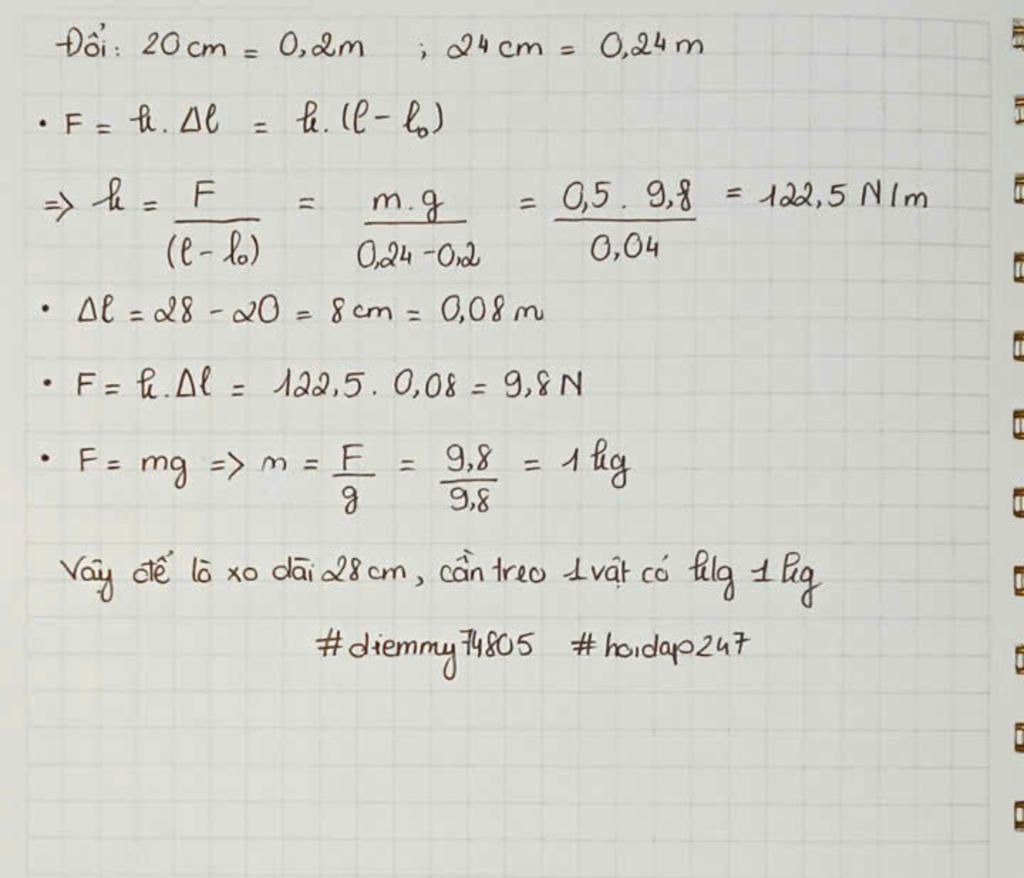 Đổi: 20 cm = 0,2m ; 24 cm = 0,24 m
• F = k. Δl = k. (l - l₀)
=> k = F/(l - l₀) = m.g/0,24 - 0,2 = 0,5 . 9,8/0,04 = 122,5 N/m
• Δl = 28 - 20 = 8 cm = 0,08 m
• F = k.Δl = 122,5 . 0,08 = 9,8 N
• F = mg => m = F/g = 9,8/9,8 = 1 kg
Vậy để lò xo dài 28 cm, cần treo 1 vật có klg 1 kg
#diemmy74805 #hoidap247